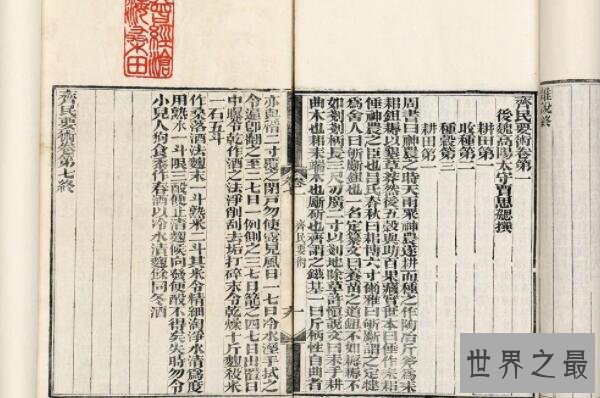 雜說終
齊民要術卷第一
後魏高陽太守賈思勰撰
耕田第一
收種第二
種穀第三
耕田第一
周書曰神農之時天雨粟神農遂耕而種之作陶冶斤斧為耒
耜鉏耨以墾草莽然後五穀與助百果藏實世本曰倕作耒耜
倕神農之臣也呂氏春秋曰耜博六寸爾雅曰斪斸謂之定犍
為舍人曰斪斸鉏也一名定纂文曰養苗之道鉏不如耨耨不
如剗剗柄長三尺刃廣二寸以剗地除草許慎說文曰耒手耕
曲木也耜耒端木也斸斫也齊謂之鎡基一曰斤柄性自曲者
卷七
齊民要術
九
曾經滄
海桑田
二寸之閉戶勿使風見風日一七日冷水溼手拭之
令遍即翻之至二七日一例側之三七日籠之四七日出置日
中曝令乾作酒之法淨削刮去垢打碎末令乾燥十斤麴殺米
一石五斗
作桑落酒法麴末一斗熟米二斗其米令精細淘淨水清為度
用熟水一斗限三酘便止漬麴候向發便酘不得失時勿令
小兒人狗食黍作春酒以冷水漬麴餘同冬酒
齊民要術卷第七終
世界之最